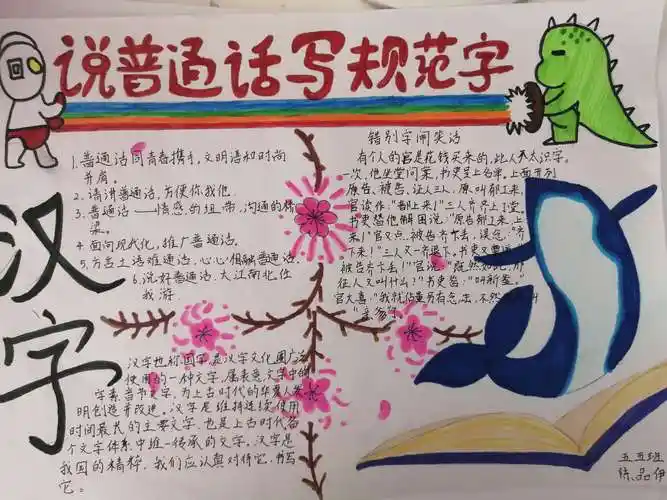 说普通话写规范字
汉字
1.普通话同青春携手,文明语和时尚
并肩。
2.请讲普通话,方便你我他。
3.普通话——情感的纽带,沟通的桥
梁。
4.面向现代化,推广普通话。
5.方言土语难通话,心心相触普通话
6.说好普通话,大江南北任
我游.
错别字闹笑话
有个人的官是花钱买来的,此人不太识字。
一次,他坐堂问案,书吏呈上名单,上面开列
原告,被告,证人三人,原 叫郁工来,
官误作:"都上来!"三人齐齐上了堂。
书吏替他解围说:"原告郁工来上
来!"官又点 被告齐卞丢,误
下来!"三人又一齐退下。书吏又
被告齐卞丢!"官说:"既然如
往人又叫什么?"书吏答:"叫新釜。"
官大喜:"我就估量另有念法,不然
亲爹了。
汉字也称国字,是汉字文化圈广泛
使用的一种文字,属表意文字中的
字素音节文字,为上古时代的华夏人发
明创造并改进。汉字是维持连续使用
时间最长的主要文字,也是上古时代各
个文字体系中唯一传承的文字。汉字是
我国的精粹,我们应认真对待它,书写
它。
五五班
品伊